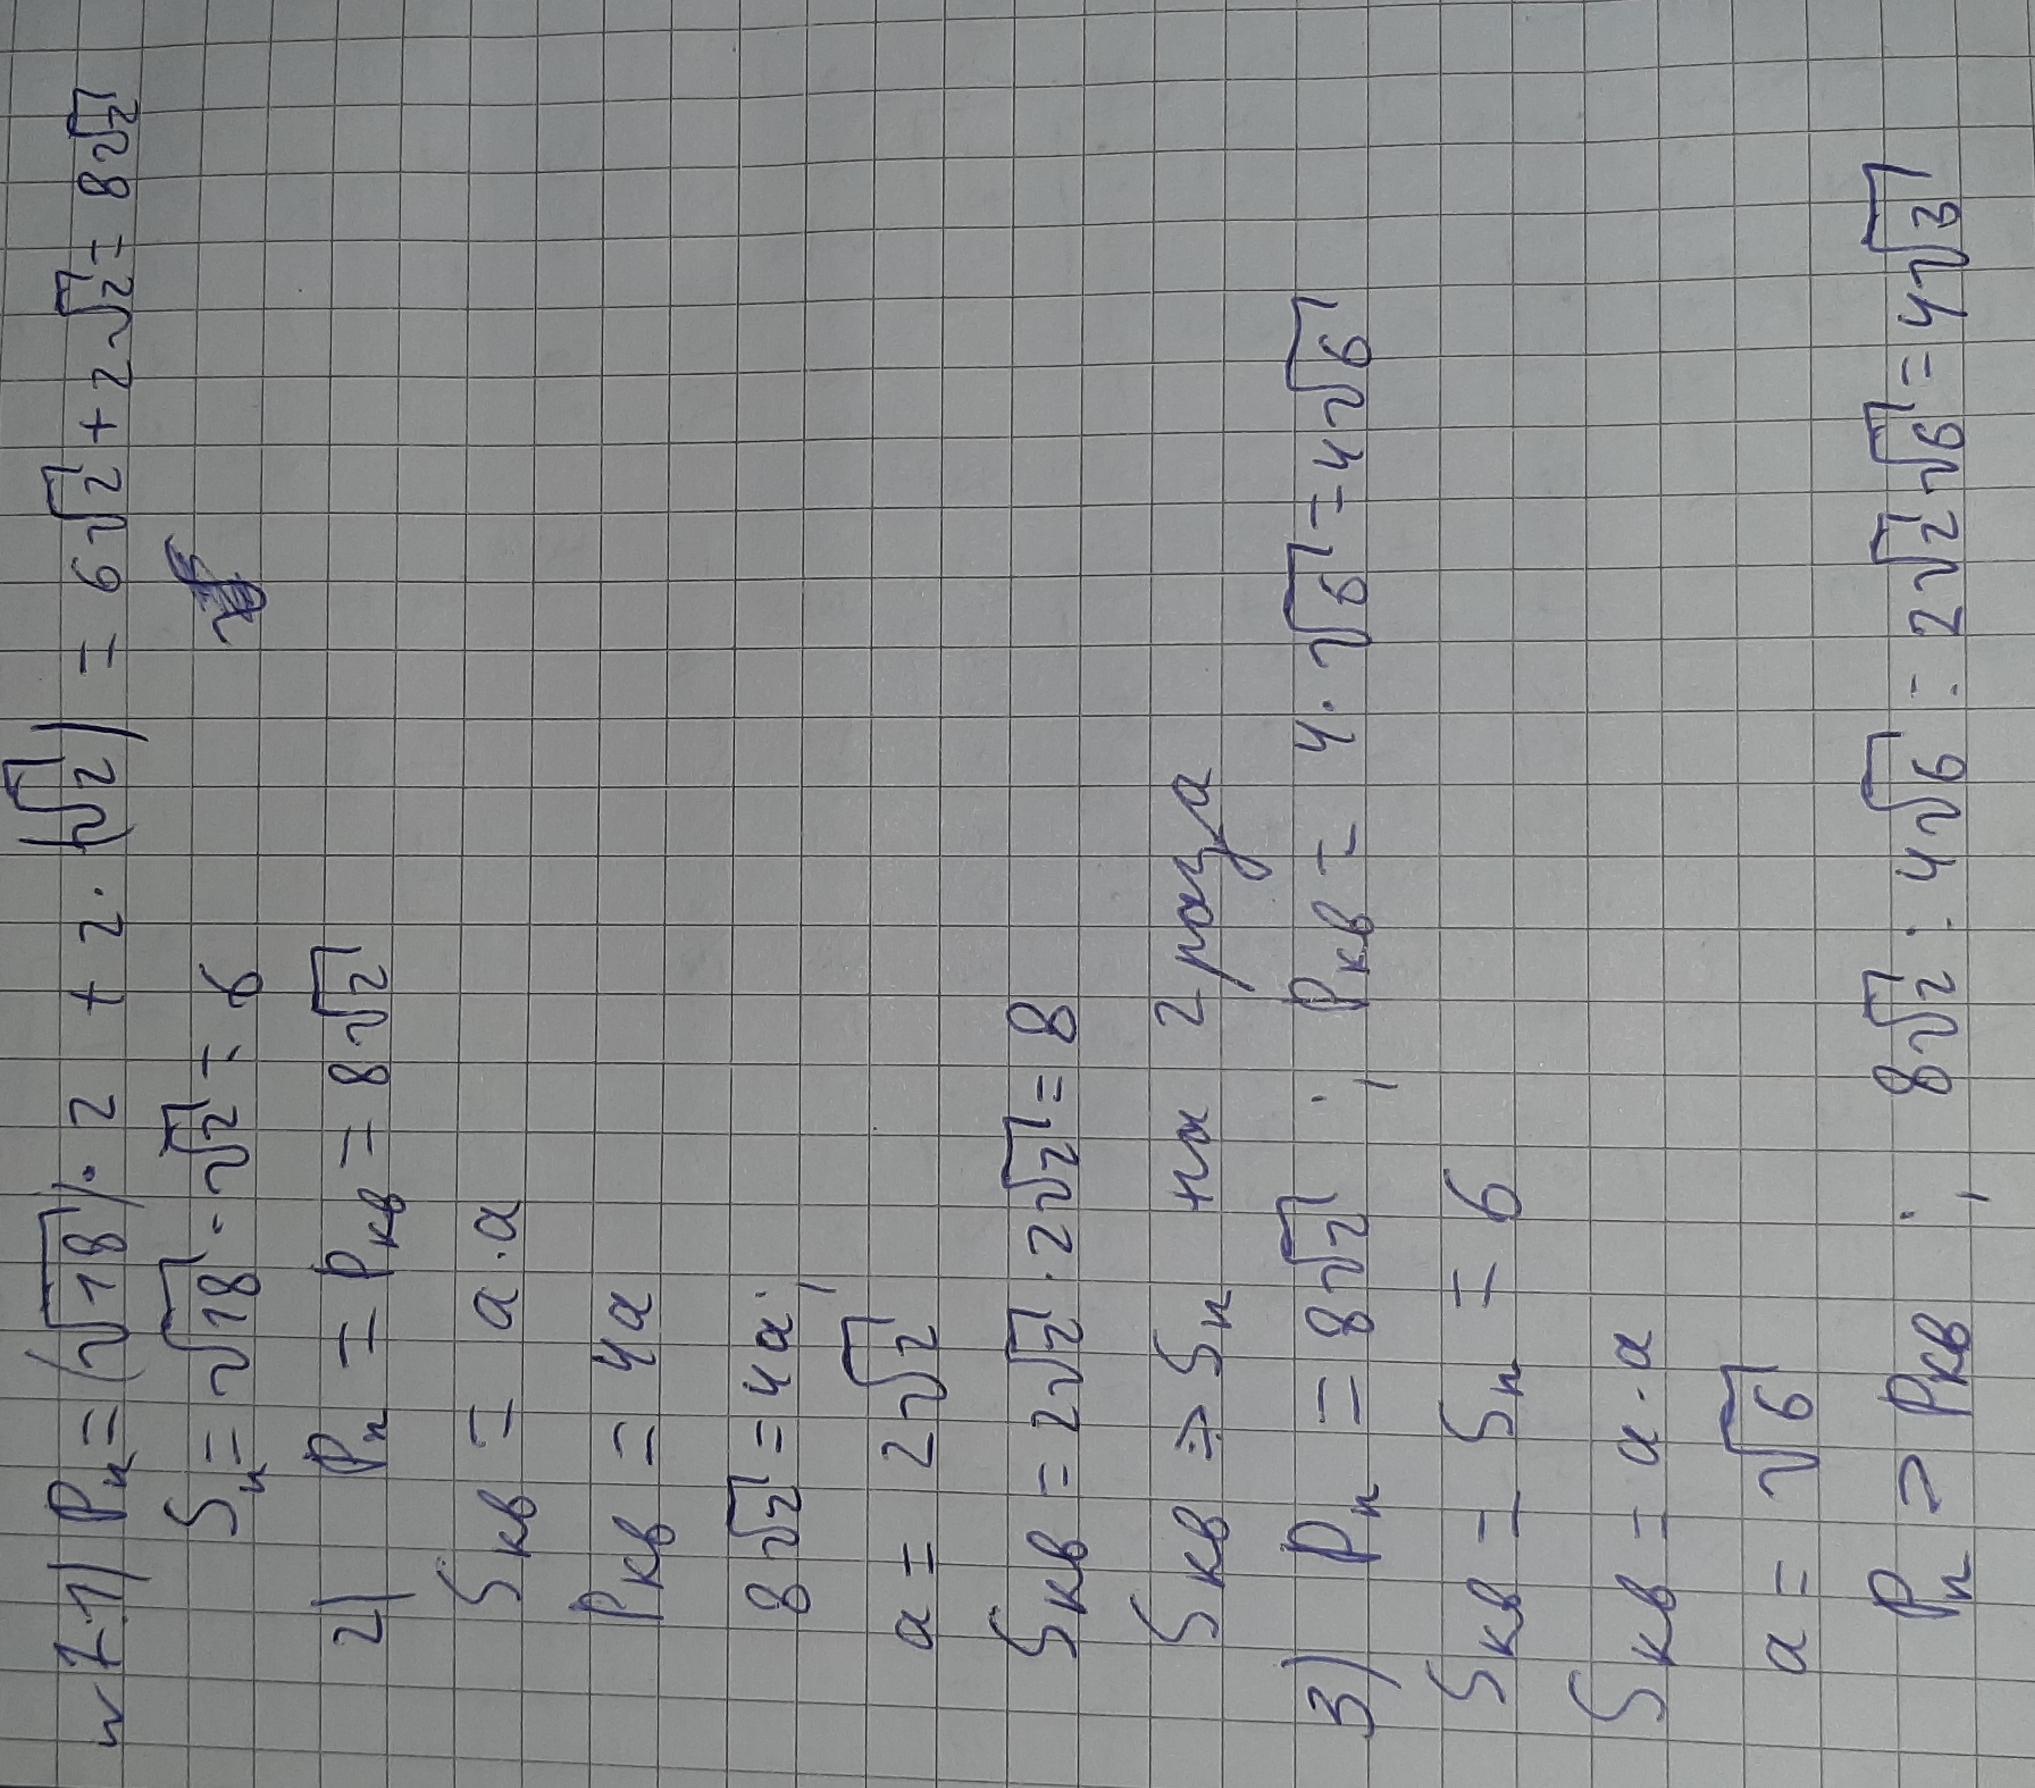 N7.1) Pп = (√18) · 2 + 2 · (√2) = 6√2 + 2√2 = 8√2
Sп = √18 · √2 = 6
2) Pп = Pкв = 8√2
Sкв = a · a
Pкв = 4a
8√2 = 4a;
a = 2√2
Sкв = 2√2 · 2√2 = 8
Sкв > Sп на 2 раза
3) Pп = 8√2 ; Pкв = 4 · √6 = 4√6
Sкв = Sп = 6
Sкв = a · a
a = √6
Pп > Pкв ; 8√2 : 4√6 = 2√2√6 = 4√3